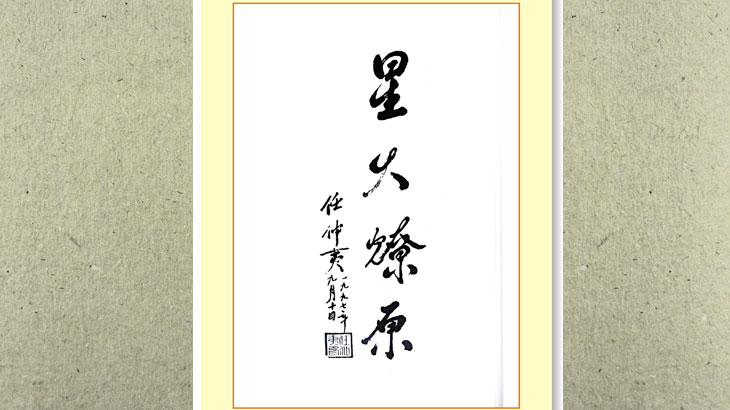 星火燎原
任仲夷
一九九七年
九月十日